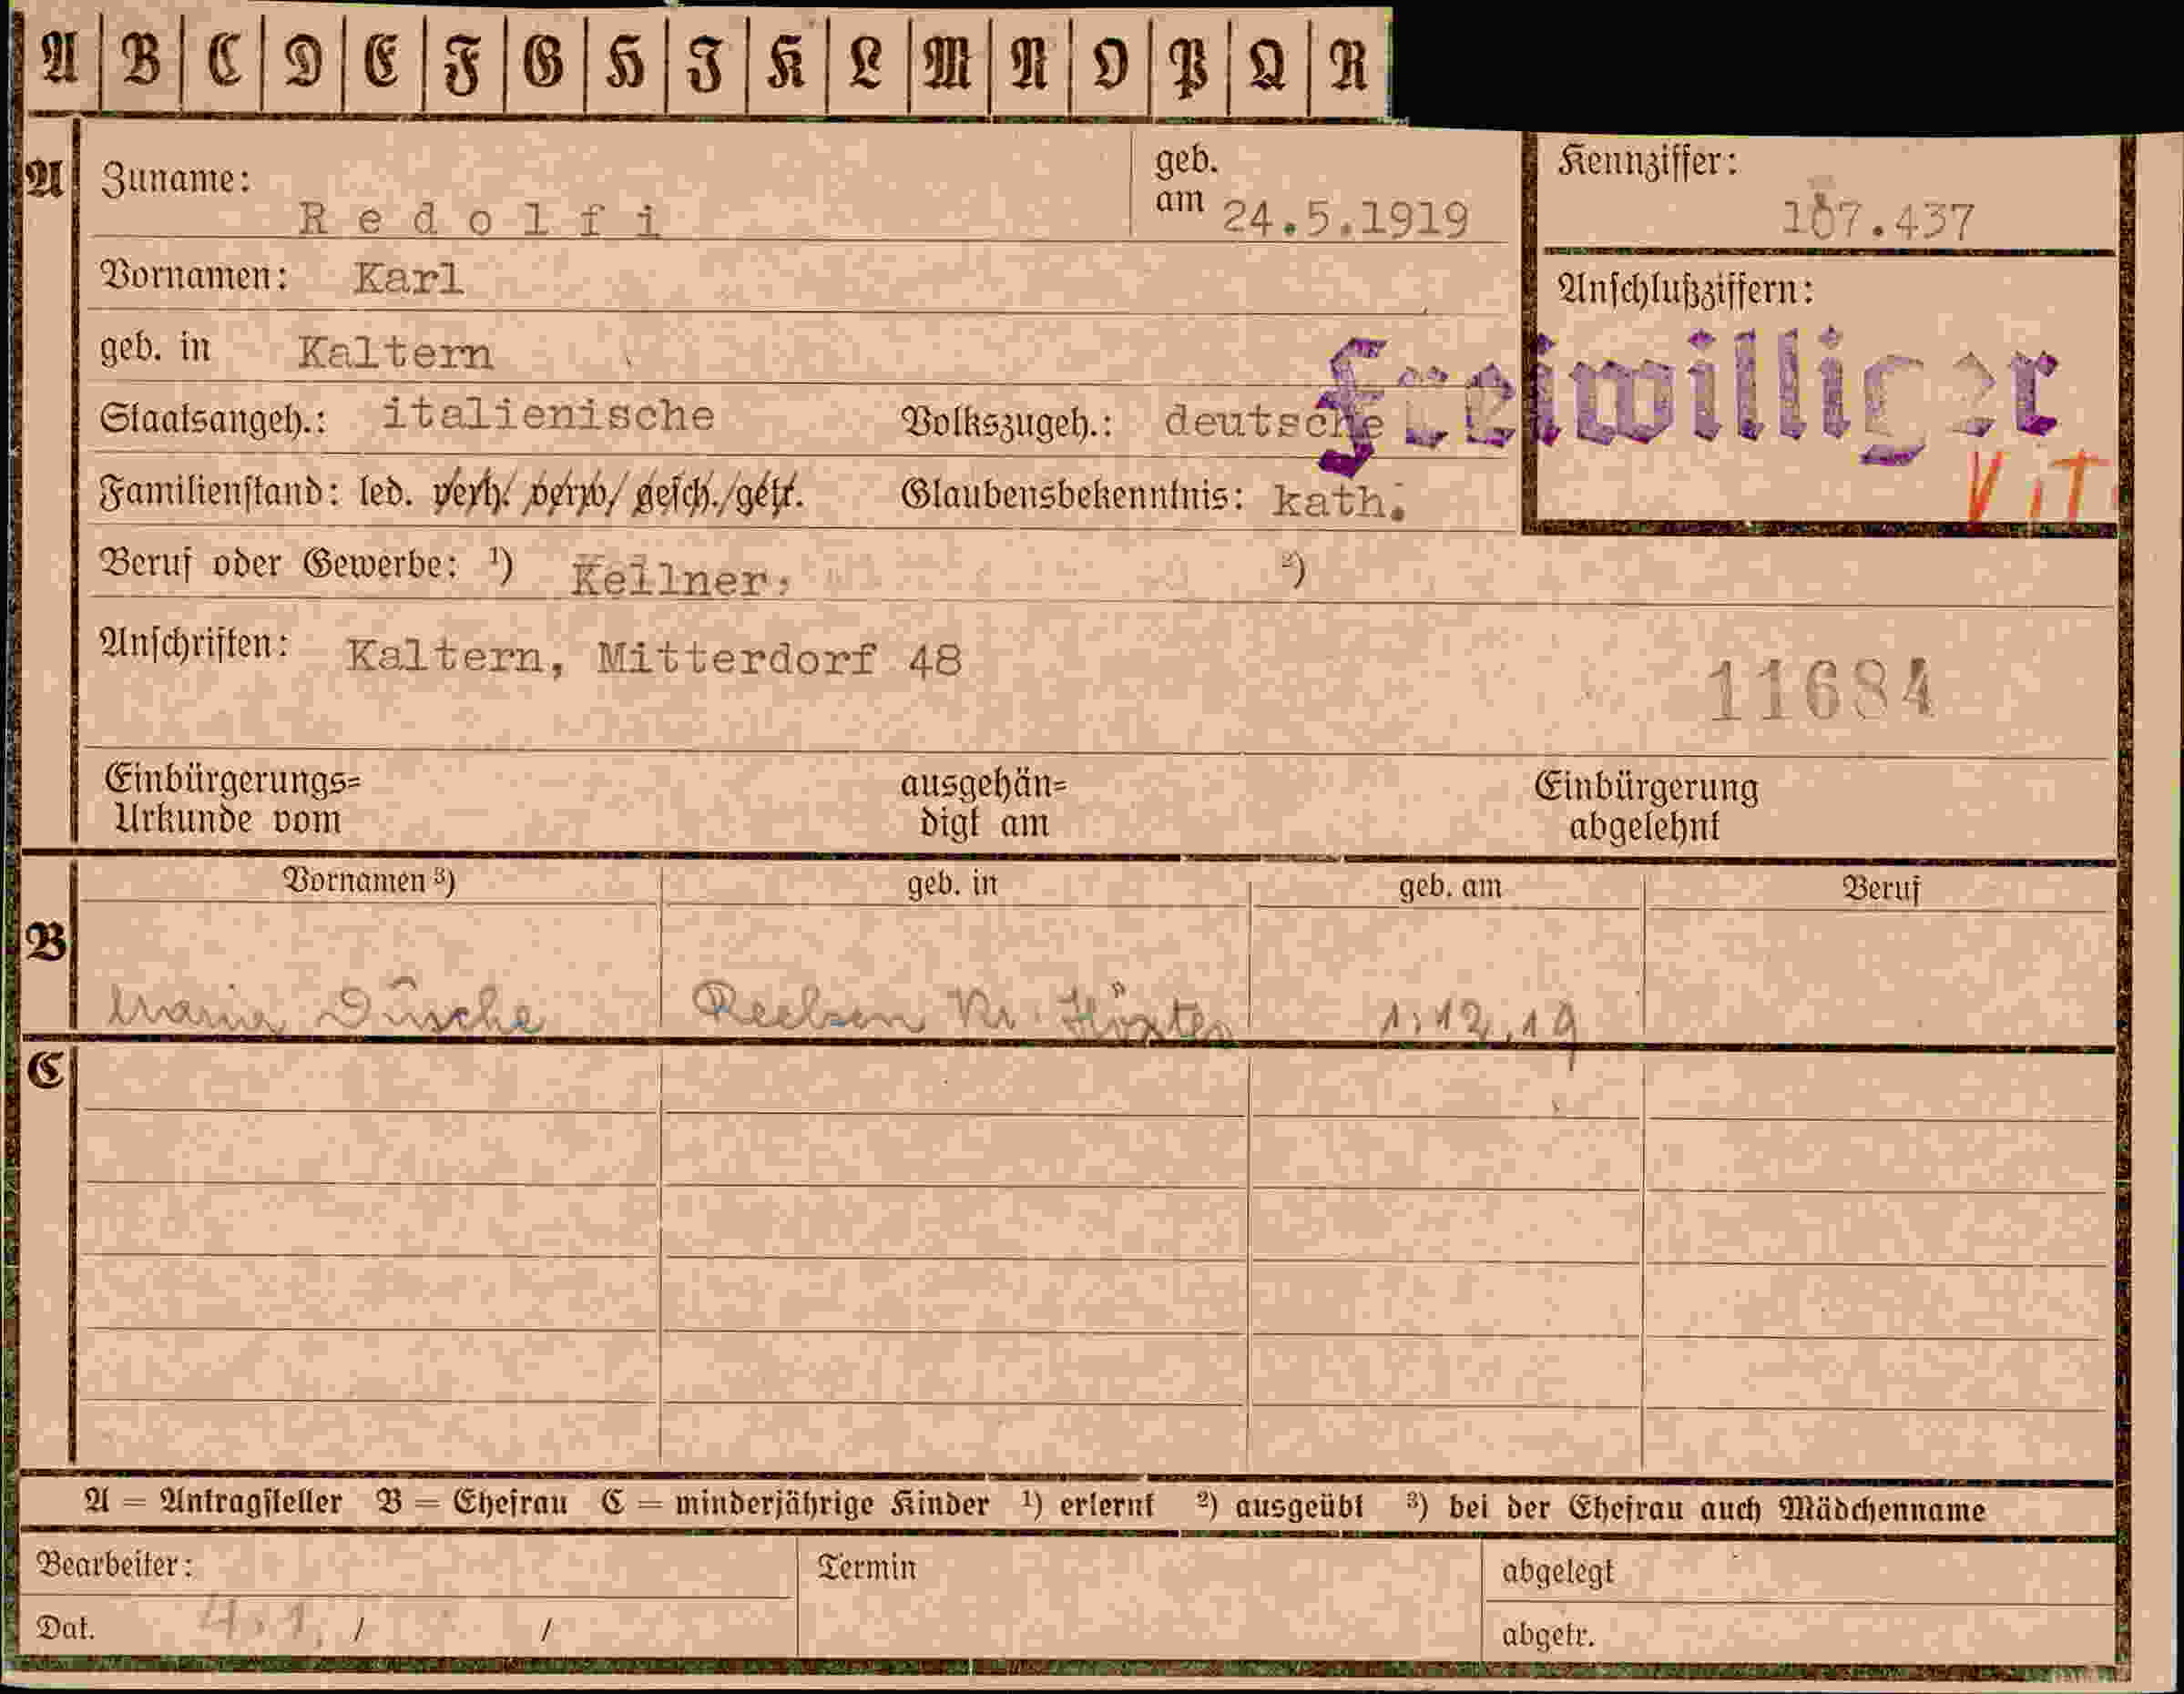 A B C D E F G H I K L M N O P Q R
A Zuname: Redolfi geb. am 24.5.1919 Kennziffer: 107.437
Vornamen: Karl Anschlußziffern:
geb. in Kaltern Freiwilliger
Staatsangeh.: italienische Volkszugeh.: deutsche
Familienstand: led. verh./verw./gesch./getr. Glaubensbekenntnis: kath.
Beruf oder Gewerbe: ¹) Kellner. ²)
Anschriften: Kaltern, Mitterdorf 48 11684
Einbürgerungs= ausgehän= Einbürgerung
Urkunde vom digt am abgelehnt
Vornamen ³) geb. in geb. am Beruf
B Maria Düsche Reelsen Kr. Höxter 1.12.19
C
A = Antragsteller B = Ehefrau C = minderjährige Kinder ¹) erlernt ²) ausgeübt ³) bei der Ehefrau auch Mädchenname
Bearbeiter: Termin abgelegt
Dat. 4.1. / / abgetr.